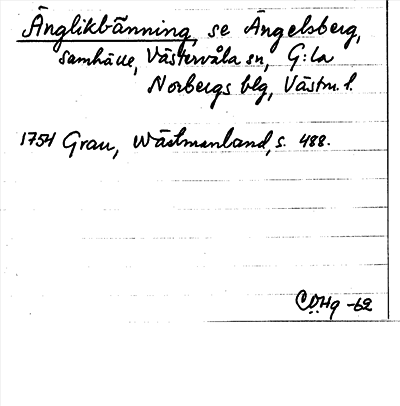 Änglikbänning, se Ängelsberg,
samhälle, Västervåla sn, G:la
Norbergs blg, Västm. l.
1754 Grau, Wästmanland, s. 488.
CÖHg -62